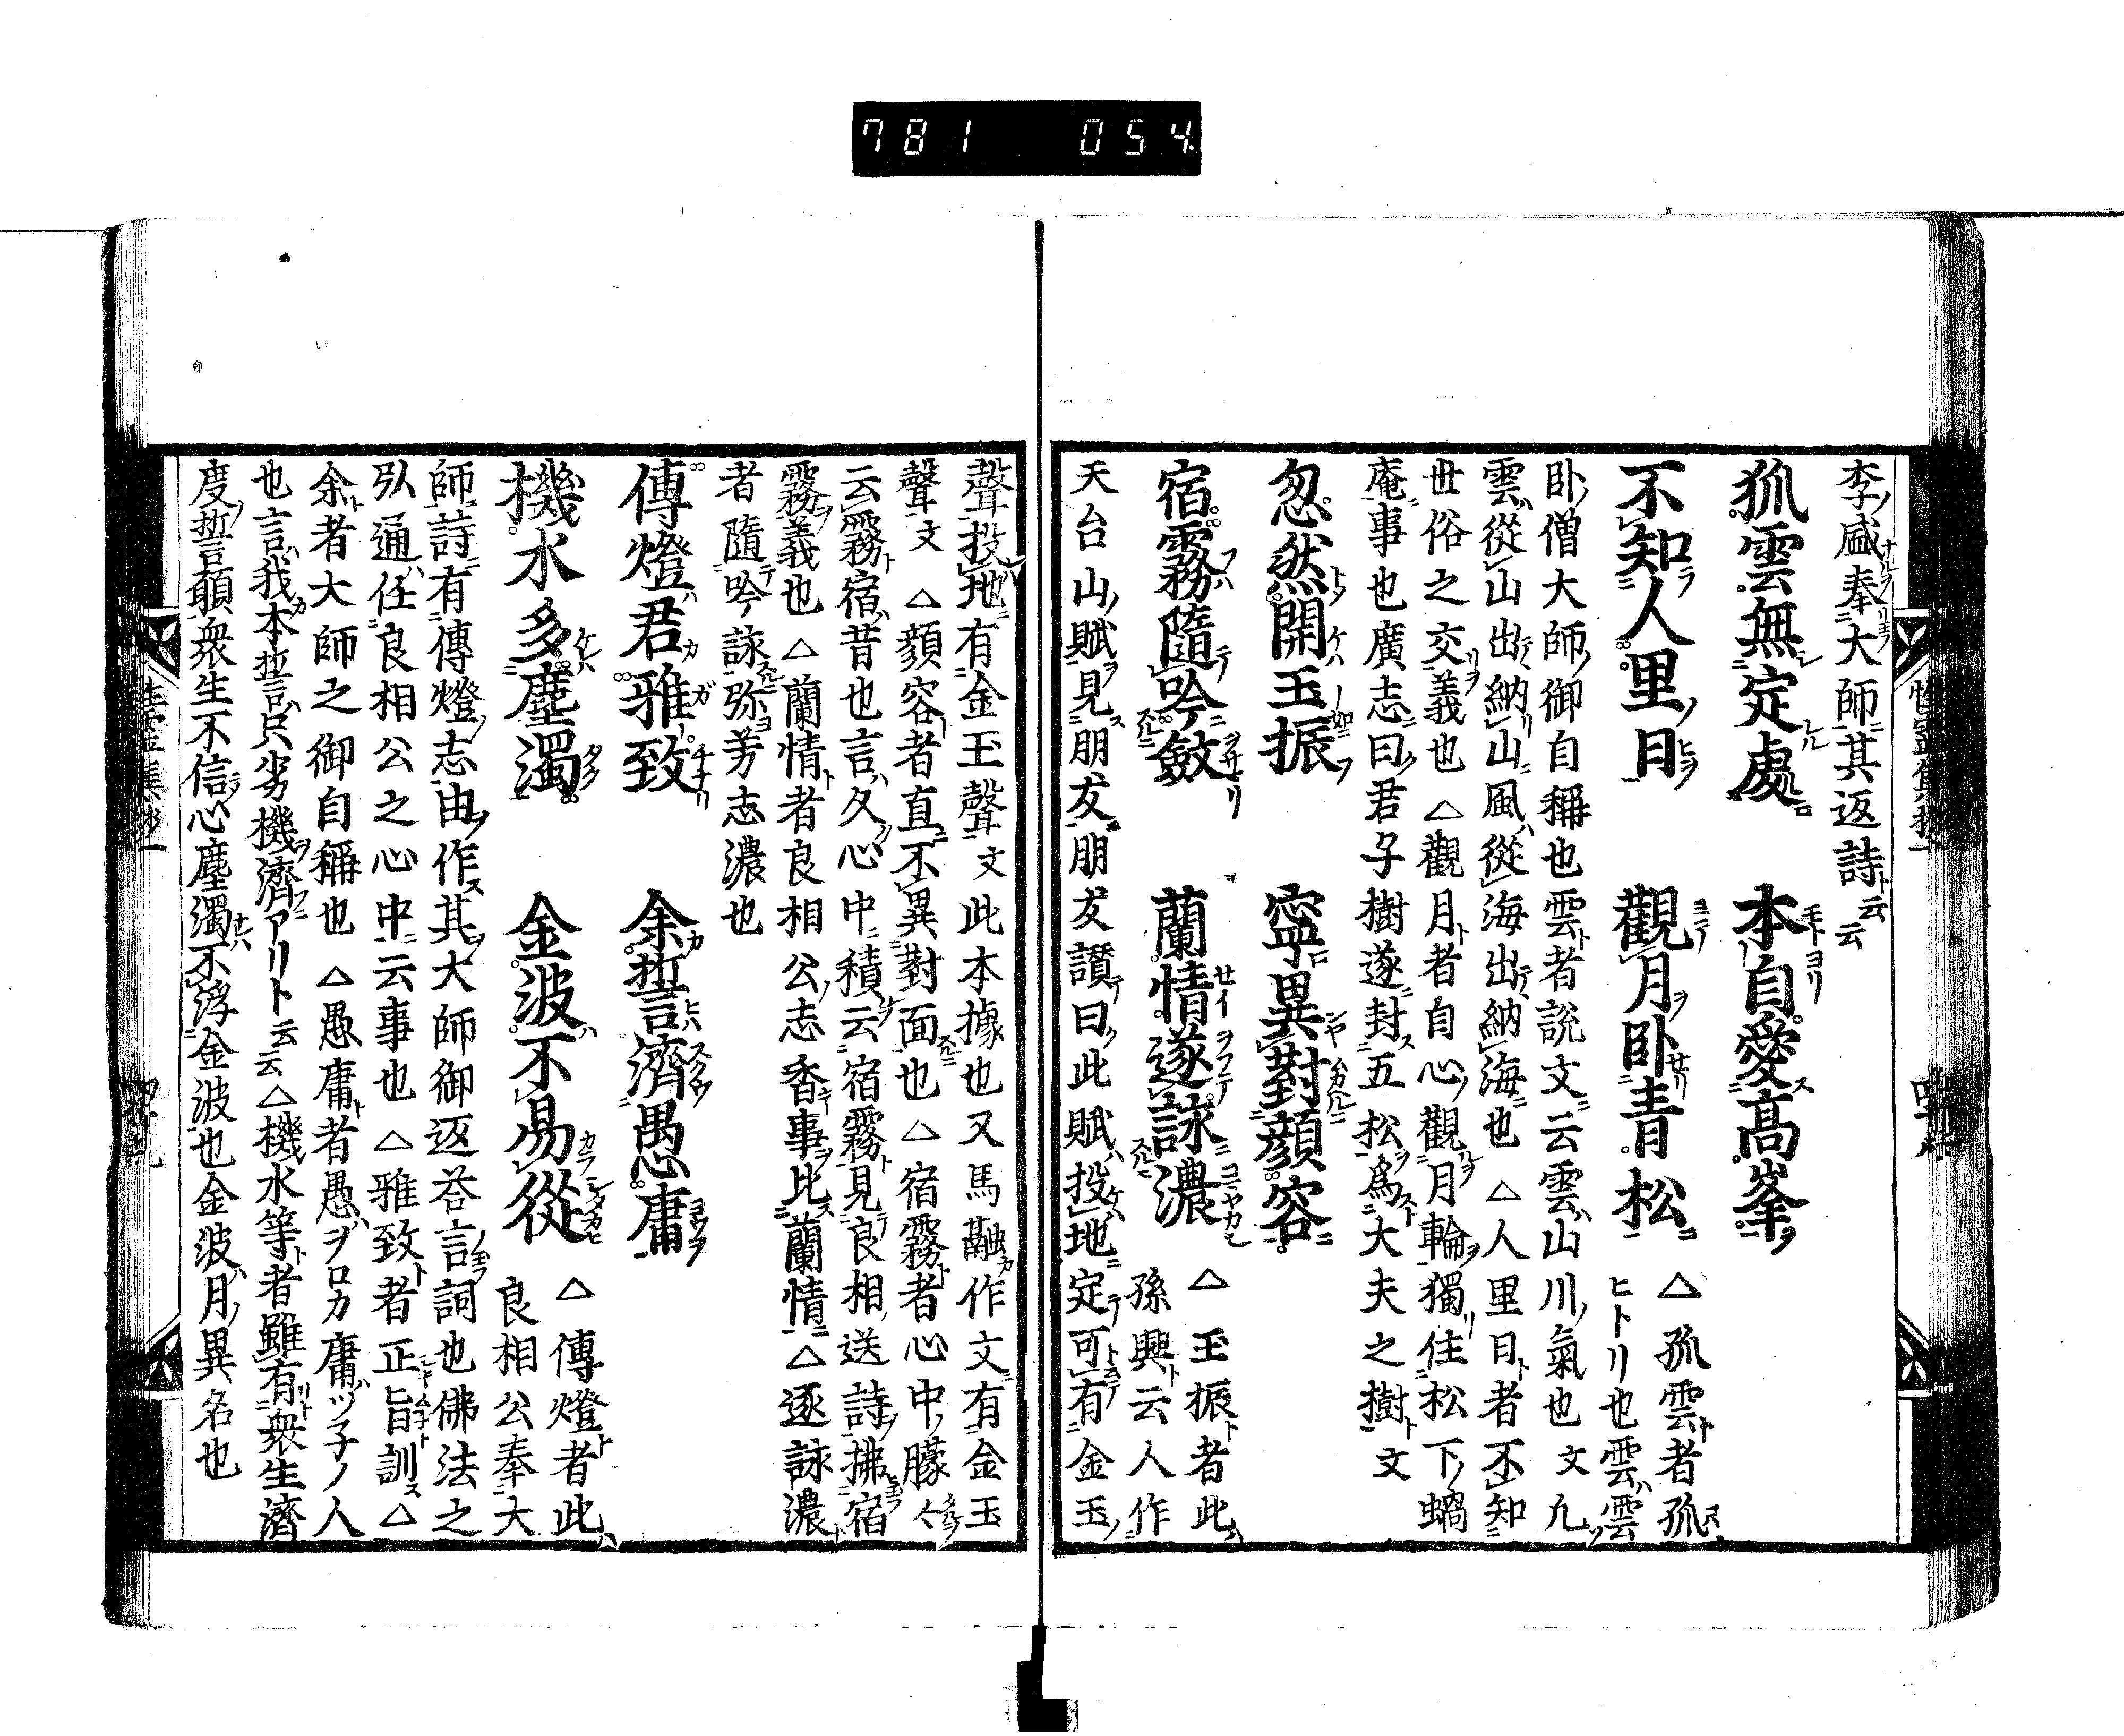 781 054
李盛奉大師其返詩云云
孤雲無定處 本自愛高峯
不知人里日 觀月臥青松
△孤雲者孤
ヒトリ也雲雲
臥僧大師御自稱也雲者說文云雲山川氣也文九
雲從山出納山風從海出納海也△人里日者不知
世俗之交義也△觀月者自心觀月輪獨住松下蝸
庵事也廣志曰君子樹遂封五松爲大夫之樹文
忽然開玉振 寧異對顔容
宿霧隨吟斂 蘭情遂詠濃
△玉振者此
孫興云人作
天台山賦見朋友朋友讚曰此賦投地定可有金玉
聲投地有金玉聲文此本據也又馬融作文有金玉
聲文△顔容者直不異對面也△宿霧者心中朦々
云霧宿昔也言久心中積云宿霧見良相送詩拂宿
霧義也△蘭情者良相公志香事比蘭情△逐詠濃
者隨吟詠弥芳志濃也
傳燈君雅致 余誓濟愚庸
機水多塵濁 金波不易從
△傳燈者此
良相公奉大
師詩有傳燈志由作其大師御返荅言詞也佛法之
弘通任良相公之心中云事也△雅致者正旨訓△
余者大師之御自稱也△愚庸者愚ヲロカ庸ツ子ノ人
也言我本誓只劣機濟アリト云云△機水等者雖有衆生濟
度誓願衆生不信心塵濁不浮金波也金波月異名也